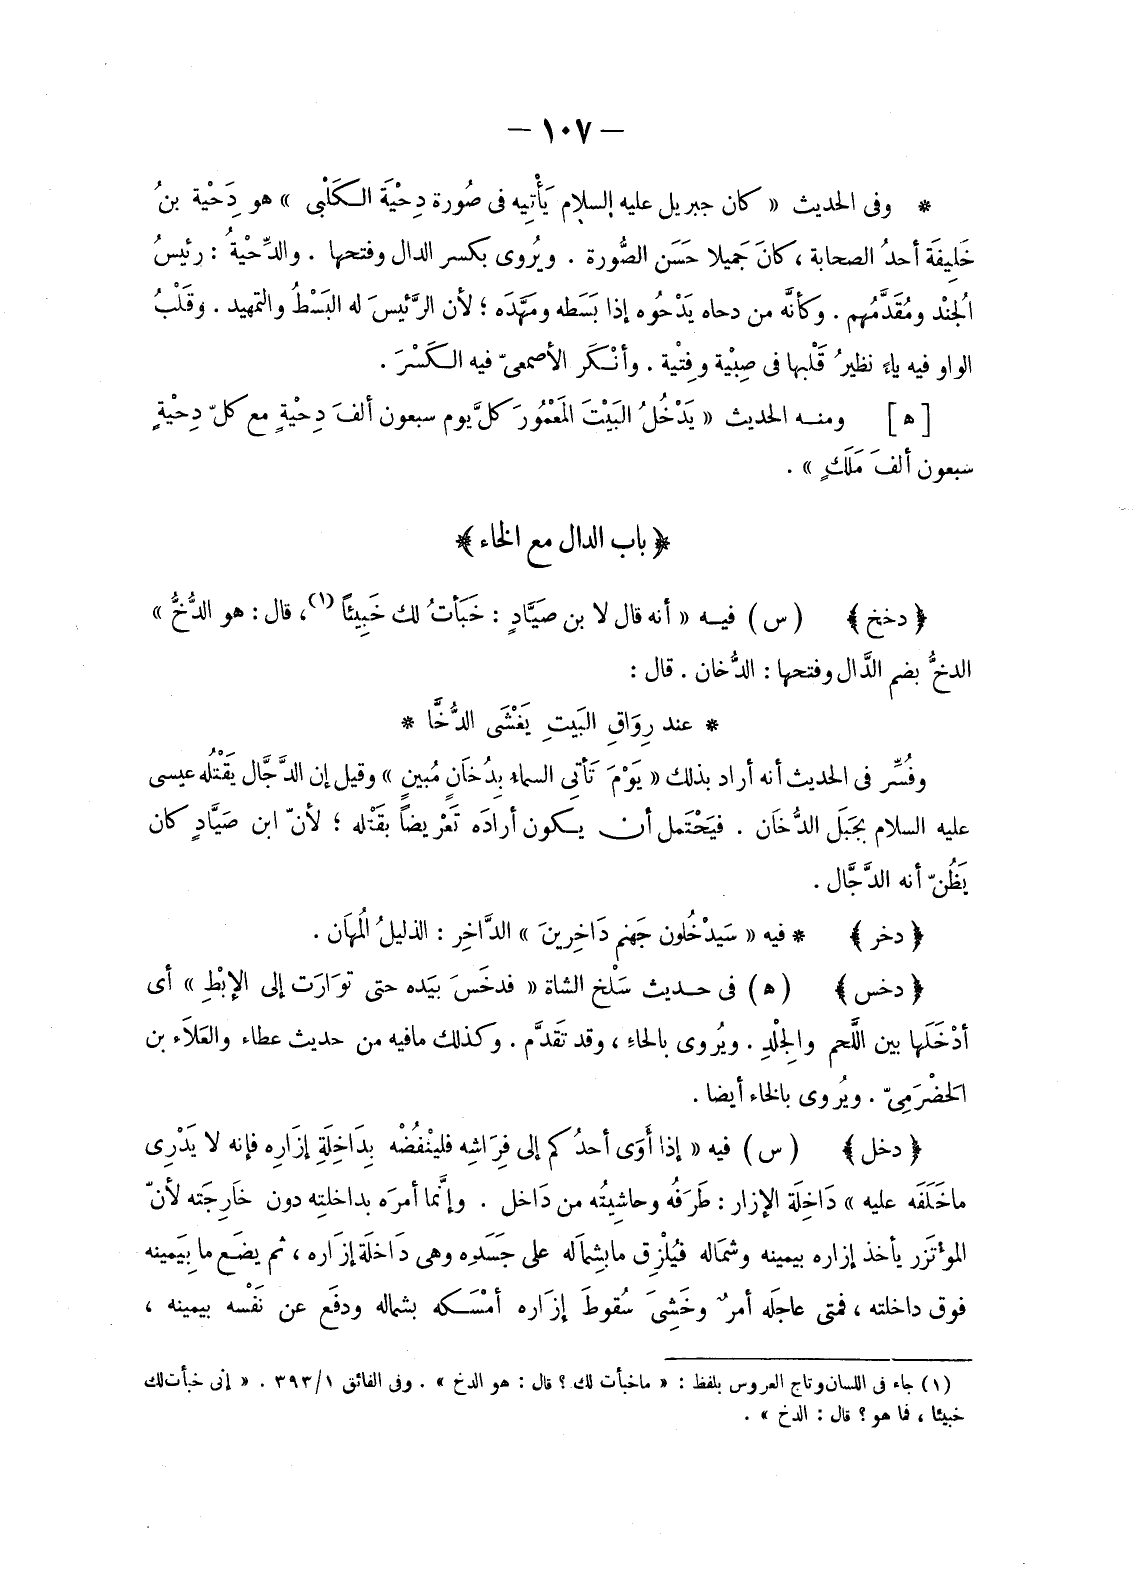 — ١٠٧ —
* وفى الحديث « كان جبريل عليه السلام يَأْتيه فى صُورة دِحْيَة الكَلْبى » هو دَِحْية بنُ
خَلِيفَة أحدُ الصحابة ، كانَ جَميلا حَسَن الصُّورة . ويُروى بكسر الدال وفتحها . والدِّحْيةُ : رئيسُ
الُجنْد ومُقَدَّمُهم . وكأنَّه من دحاه يَدْحُوه إذا بَسَطه ومَهَّدَه ؛ لأن الرَّئيسَ له البَسْطُ والتمهيد . وقَلْبُ
الواو فيه ياءً نظيرُ قَلْبها فى صِبْية وفِتْية . وأنْكَر الأصمعىّ فيه الكَسْرَ .
[ ه ] ومنه الحديث « يَدْخُلُ البَيْتَ المَعْمُورَ كلَّ يوم سبعون ألفَ دِحْيةٍ مع كلّ دِحْيةٍ
سبعون ألفَ مَلَكٍ » .
﴿ باب الدال مع الخاء ﴾
﴿ دخخ ﴾ ( س ) فيه « أنه قال لابن صَيَّادٍ : خَبَأتُ لك خَبِيئاً (١)، قال : هو الدُّخُّ »
الدخُّ بضم الدَّال وفتحها : الدُّخان . قال :
* عند رِوَاقِ البَيتِ يَغْشَى الدُّخَّا *
وفُسِّر فى الحديث أنه أراد بذلك « يَوْمَ تَأتِى السماء بِدُخَانٍ مُبينٍ » وقيل إن الدَّجَّال يَقْتُله عيسى
عليه السلام بجَبَل الدُّخَان . فيَحْتَمل أن يكون أرادَه تَعْريضاً بقَتْله ؛ لأنّ ابن صَيَّادٍ كان
يَظُنّ أنه الدَّجَّال .
﴿ دخر ﴾ * فيه « سَيَدْخُلون جَهنم دَاخِرينَ » الدَّاخِر : الذليلُ المُهَان .
﴿ دخس ﴾ ( ه ) فى حديث سَلْخ الشاة « فدخَسَ بيَده حتى توَارَت إلى الإبْطِ » أى
أدْخَلَها بين اللَّحم والِجلْدِ . ويُروى بالحاءِ ، وقد تَقدَّم . وكذلك مافيه من حديث عطاء والعَلاَء بن
الحَضْرَمِىّ . ويُروى بالخاء أيضا .
﴿ دخل ﴾ ( س ) فيه « إذا أَوَى أحدُكم إلى فِرَاشِه فليَنْفُضْه بِدَاخِلَةِ إزَارِه فإنه لا يَدْرِى
ماخَلَفَه عليه » دَاخِلَة الإزار : طَرَفُه وحاشيتُه من دَاخل . وإنَّما أمرَه بداخلتِه دون خَارِجَته لأنّ
المؤتَزر يأخذ إزاره بيمينه وشماله فيُلْزِق مابشِمَاله على جَسَدِه وهى دَاخلَة إزَاره ، ثم يضَع ما بِيَمينه
فوق داخلته ، فمتى عاجلَه أمرٌ وخَشِىَ سُقوطَ إزَاره أمْسَكه بشماله ودفَع عن نَفْسه بيمينه ،
(١) جاء فى اللسان وتاج العروس بلفظ : « ماخبأت لك ؟ قال : هو الدخ » . وفى الفائق ٣٩٣/١ . « إنى خبأت لك
خبيئا ، فما هو ؟ قال : الدخ » .